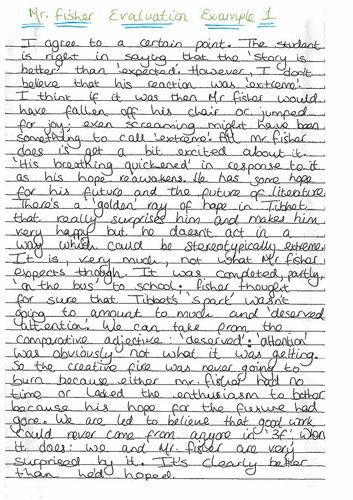 Mr. Fisher Evaluation Example 1.
I agree to a certain point. The student
is right in saying that the 'story is
better than expected. However, I don't
believe that his reaction was 'extreme'.
I think if it was then Mr fisher would
have fallen off his chair or jumped
for joy: even screaming might have been
something to call 'extreme'. All mr fisher
does is get a bit excited about it.
'His breathing quickened' in response to it
as his hope reawakens. He has some hope
for his future and the future of literature.
There's a 'golden' ray of hope in Tibbet,
that really surprises him and makes him
very happy but he doesn't act in a
way which could be stereotypically extreme.
It is, very much, not what Mr fisher
expects though. It was completed, partly,
'on the bus' to school: fisher thought
for sure that Tibbet's 'spark' wasn't
going to amount to much and 'deserved
attention.' We can take from the
comparative adjective: 'deserved': 'attention'
was obviously not what it was getting.
So the creative fire was never going to
burn because either mr. fisher had no
time or lacked the enthusiasm to bother
because his hope for the future had
gone. We are led to believe that good work
could never come from anyone in '3F'. When
it does: we and Mr. fisher are very
surprised by it. It's clearly better
than he'd hoped.